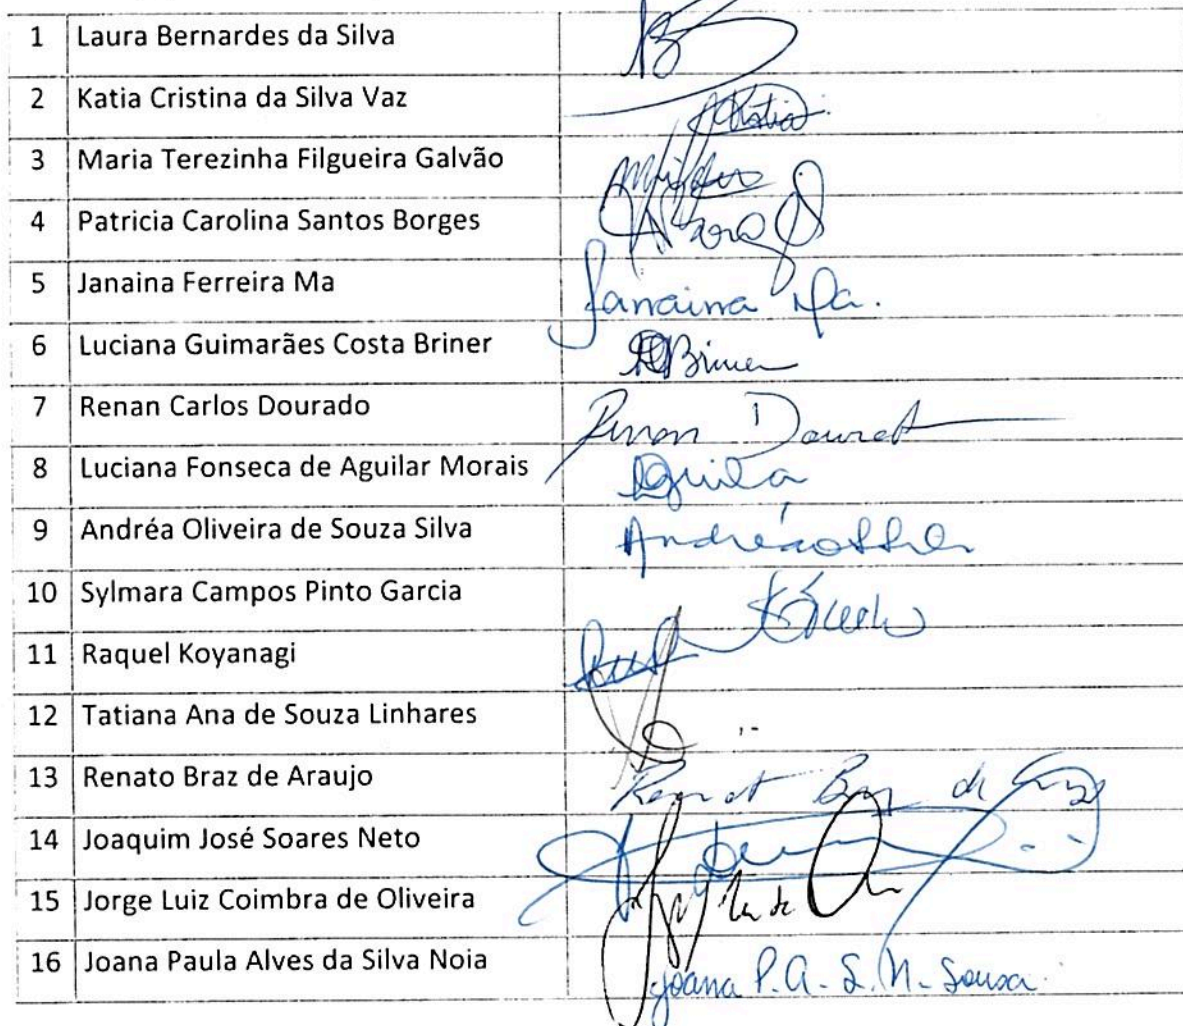 1 Laura Bernardes da Silva
2 Katia Cristina da Silva Vaz Katia
3 Maria Terezinha Filgueira Galvão
4 Patricia Carolina Santos Borges
5 Janaina Ferreira Ma Janaina Ma.
6 Luciana Guimarães Costa Briner Briner
7 Renan Carlos Dourado Renan Dourado
8 Luciana Fonseca de Aguilar Morais
9 Andréa Oliveira de Souza Silva
10 Sylmara Campos Pinto Garcia
11 Raquel Koyanagi
12 Tatiana Ana de Souza Linhares
13 Renato Braz de Araujo Renato Braz de Araujo
14 Joaquim José Soares Neto
15 Jorge Luiz Coimbra de Oliveira
16 Joana Paula Alves da Silva Noia Joana P. A. S. N. Sousa